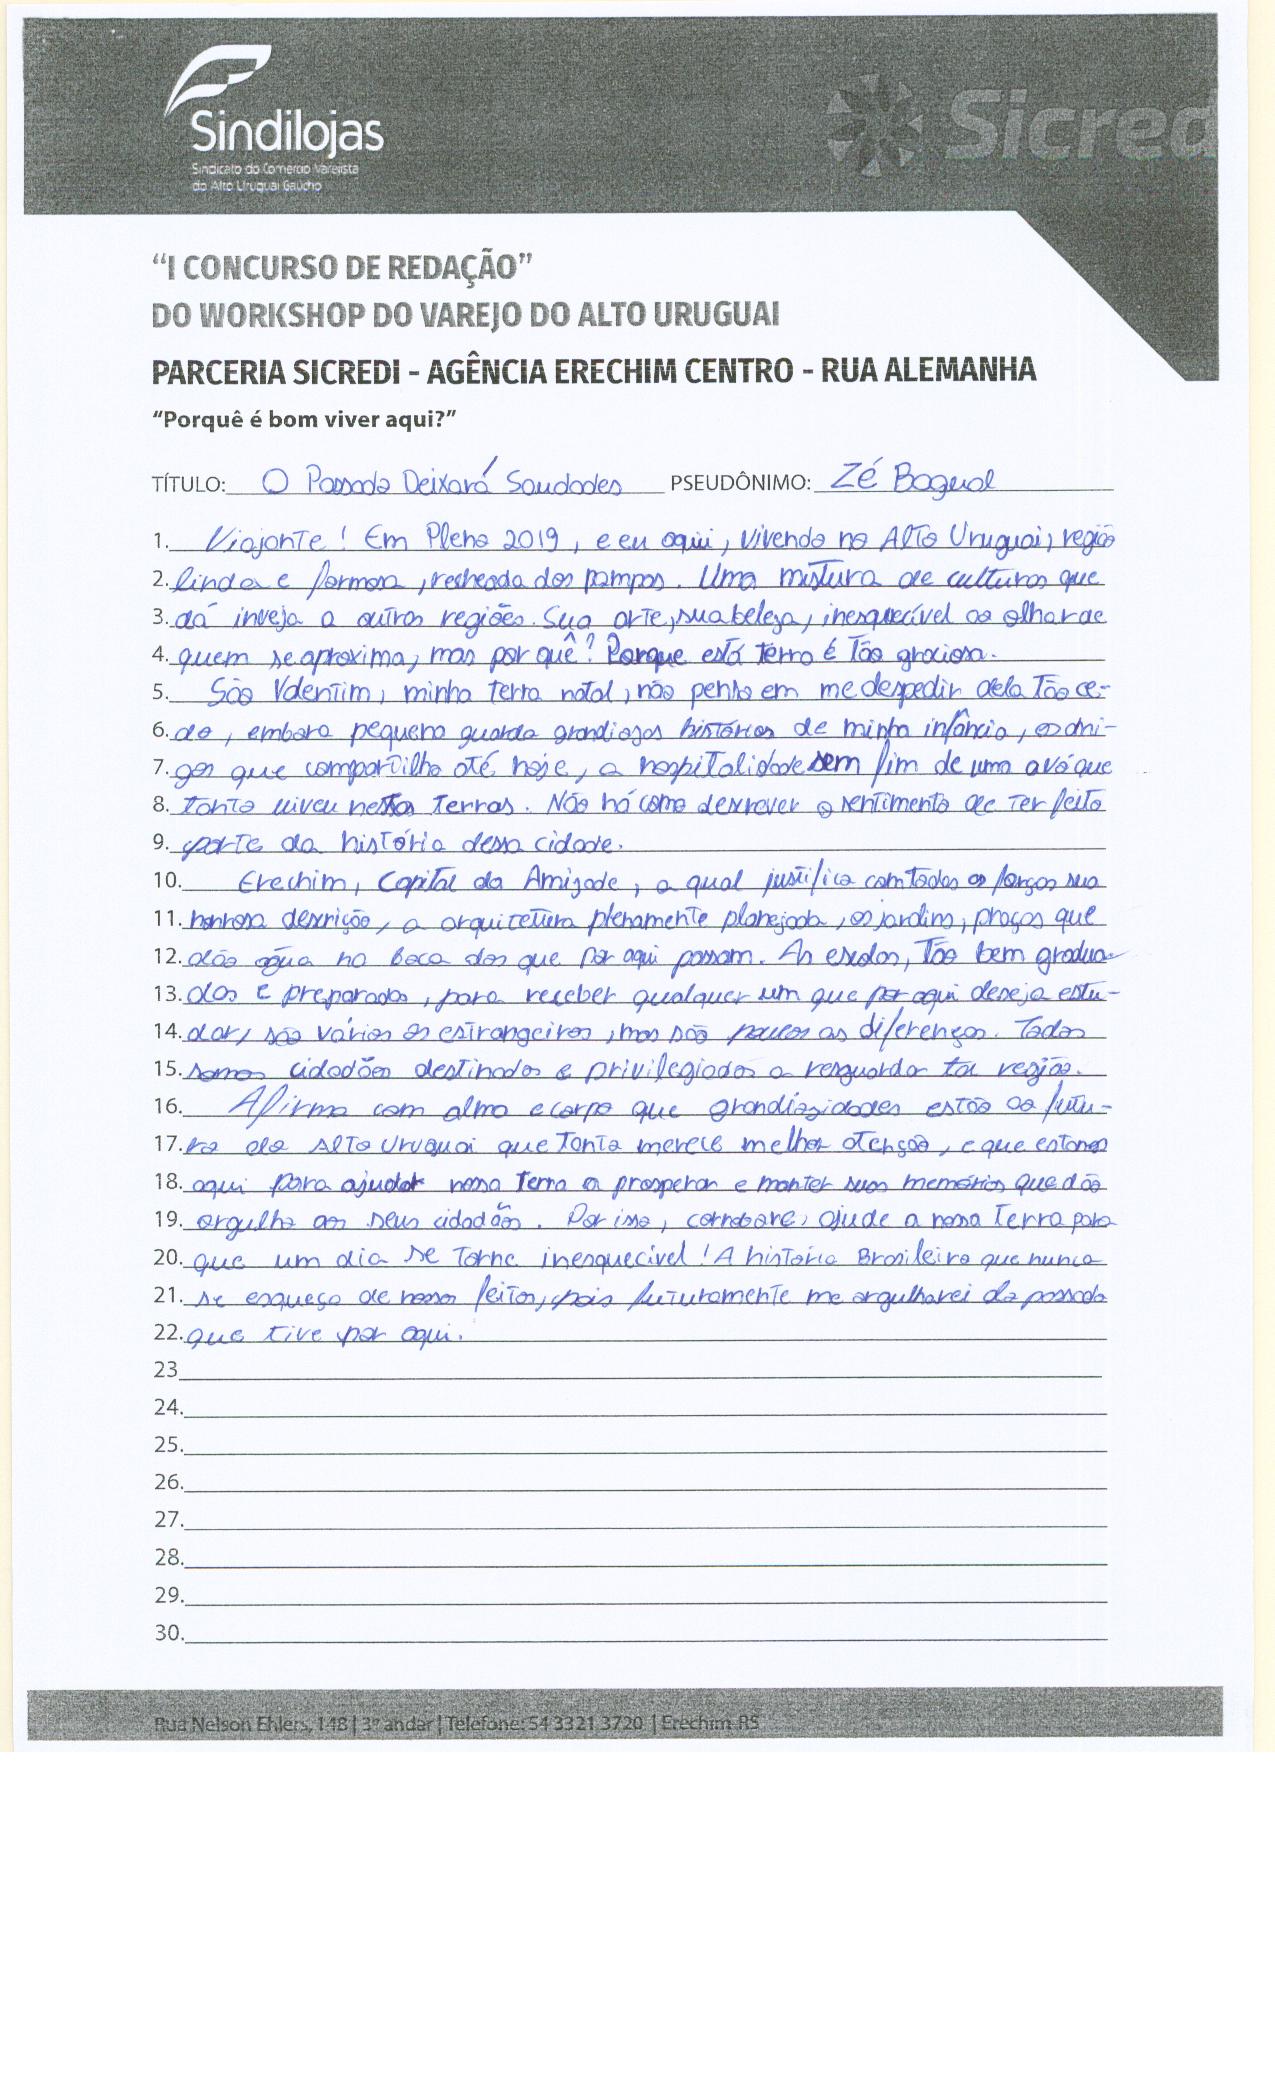 Sindilojas
Sindicato do Comércio Varejista
do Alto Uruguai Gaúcho
Sicred
“I CONCURSO DE REDAÇÃO”
DO WORKSHOP DO VAREJO DO ALTO URUGUAI
PARCERIA SICREDI - AGÊNCIA ERECHIM CENTRO - RUA ALEMANHA
“Porquê é bom viver aqui?”
TÍTULO: O Passado Deixará Saudades PSEUDÔNIMO: Zé Bagual
1. Viajante! Em Pleno 2019, e eu aqui, vivendo no Alto Uruguai, região
2. linda e formosa, recheada dos pampas. Uma mistura de culturas que
3. dá inveja a outras regiões. Sua arte, sua beleza, inesquecível ao olhar de
4. quem se aproxima, mas por quê? Porque está terra é tão graciosa.
5. São Valentim, minha terra natal, não penso em me despedir dela tão ce-
6. do, embora pequena guarda grandiosas histórias de minha infância, os ami-
7. gos que compartilho até hoje, a hospitalidade sem fim de uma avó que
8. tanto viveu nesta terras. Não há como descrever o sentimento de ter feito
9. parte da história dessa cidade.
10. Erechim, Capital da Amizade, a qual justifica com todas as forças sua
11. honrosa descrição, a arquitetura plenamente planejada, os jardins, praças que
12. dão água na boca dos que por aqui passam. As escolas, tão bem gradua-
13. dos e preparados, para receber qualquer um que por aqui deseja estu-
14. dar, são vários os estrangeiros, mas são poucos as diferenças. Todos
15. somos cidadãos destinados e privilegiados a resguardar tal região.
16. Afirmo com alma e corpo que grandiozidades estão ao futu-
17. ro do Alto Uruguai que tanto merece melhor atenção, e que estamos
18. aqui para ajudar nossa terra a prosperar e manter suas memórias que dão
19. orgulho aos seus cidadãos. Por isso, corrobore, ajude a nossa terra para
20. que um dia se torne inesquecível! A história Brasileira que nunca
21. se esqueça de nossos feitos, pois futuramente me orgulharei do passado
22. que tive por aqui.
23
24.
25.
26.
27.
28.
29.
30.
Rua Nelson Ehlers, 148 | 3º andar | Telefone: 54 3321 3720 | Erechim-RS